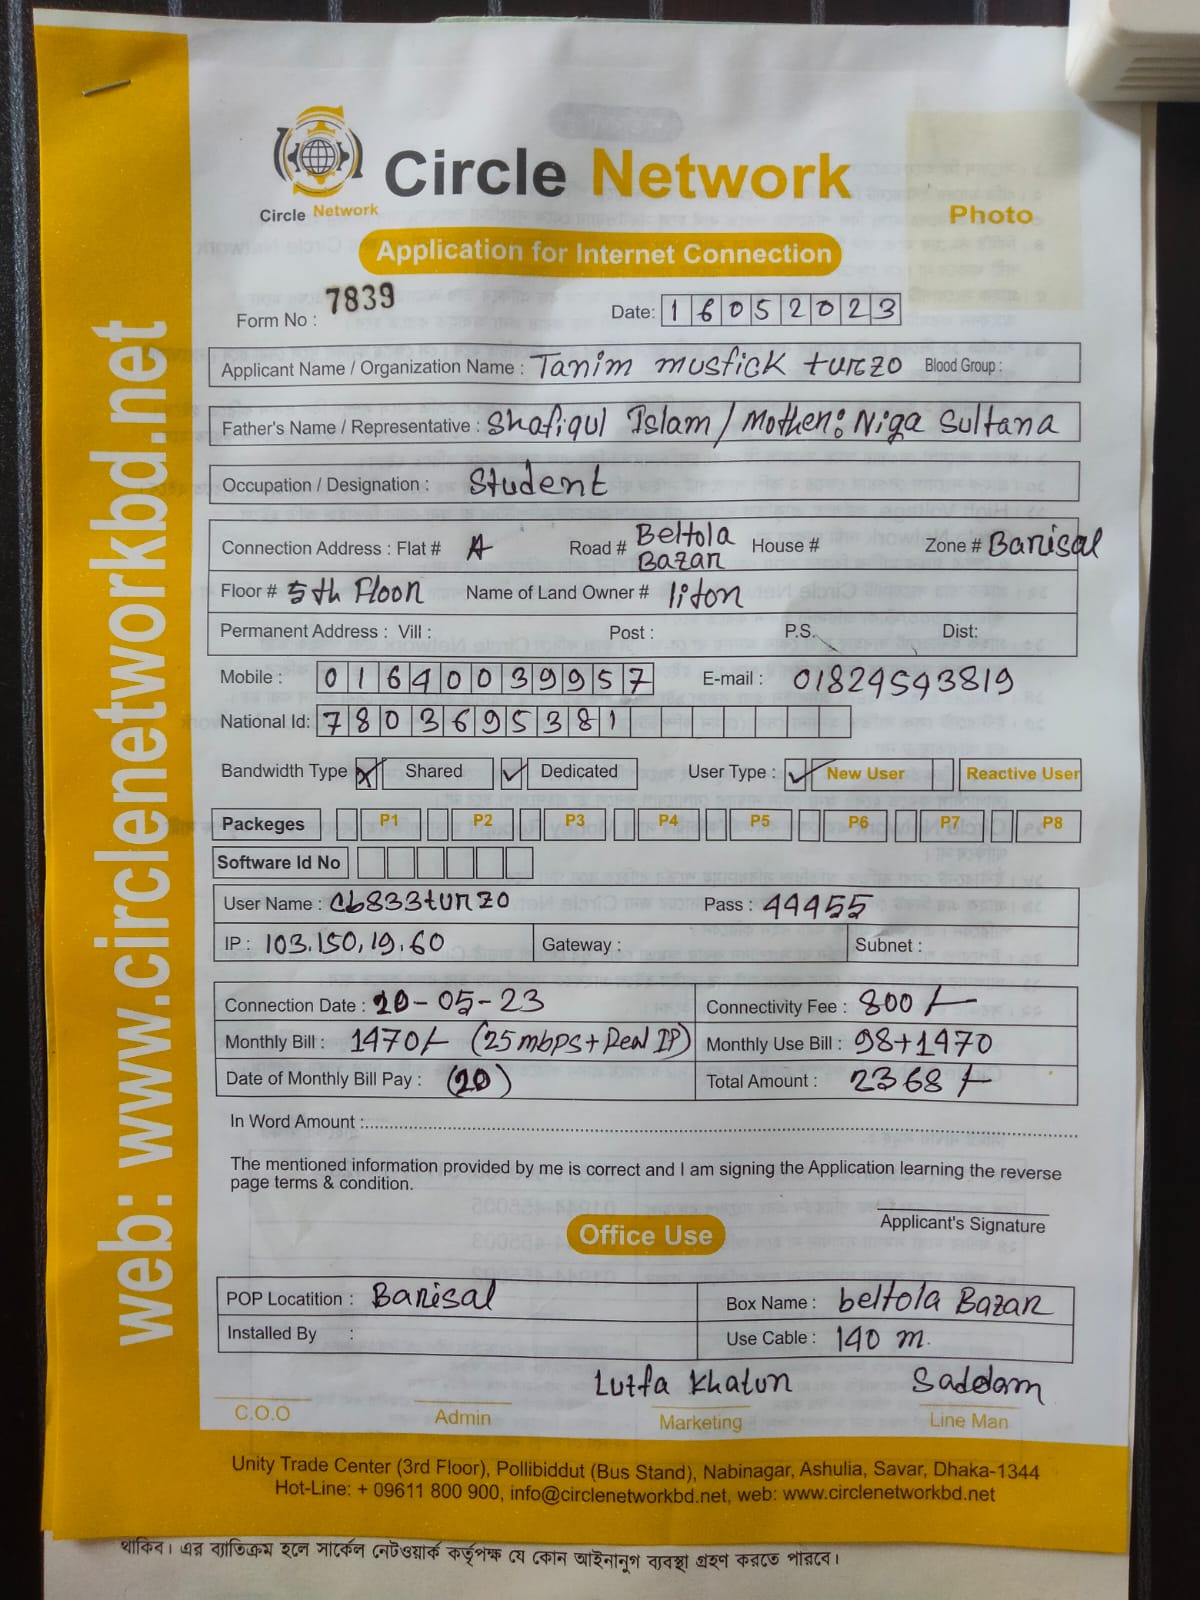 web: www.circlenetworkbd.net
Circle Network
Circle Network
Photo
Application for Internet Connection
Form No : 7839
Date: 16052023
Applicant Name / Organization Name : Tanim musfick turzo Blood Group :
Father's Name / Representative : Shafiqul Islam / Mother: Niga Sultana
Occupation / Designation : Student
Connection Address : Flat # A Road # Beltola Bazar House # Zone # Barisal
Floor # 5th Floor Name of Land Owner # liton
Permanent Address : Vill : Post : P.S. Dist:
Mobile : 01640039957 E-mail : 01824543819
National Id: 7803695381
Bandwidth Type Shared Dedicated User Type : New User Reactive User
Packeges P1 P2 P3 P4 P5 P6 P7 P8
Software Id No
User Name : cb833turzo Pass : 44455
IP : 103.150,19.60 Gateway : Subnet :
Connection Date : 20-05-23 Connectivity Fee : 800/-
Monthly Bill : 1470/- (25mbps+Real IP) Monthly Use Bill : 98+1470
Date of Monthly Bill Pay : (20) Total Amount : 2368/-
In Word Amount :
The mentioned information provided by me is correct and I am signing the Application learning the reverse
page terms & condition.
Applicant's Signature
Office Use
POP Locatition : Barisal Box Name : beltola Bazar
Installed By : Use Cable : 140 m.
Lutfa Khatun Saddam
C.O.O Admin Marketing Line Man
Unity Trade Center (3rd Floor), Pollibiddut (Bus Stand), Nabinagar, Ashulia, Savar, Dhaka-1344
Hot-Line: + 09611 800 900, info@circlenetworkbd.net, web: www.circlenetworkbd.net
থাকিব। এর ব্যতিক্রম হলে সার্কেল নেটওয়ার্ক কর্তৃপক্ষ যে কোন আইনানুগ ব্যবস্থা গ্রহণ করতে পারবে।